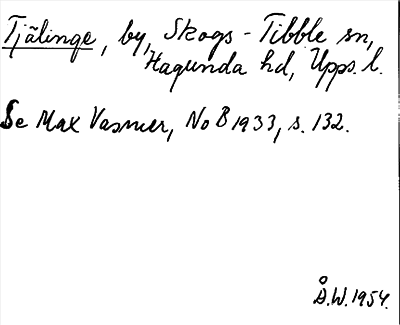 Tjälinge, by, Skogs-Tibble sn,
Hagunda hd, Upps. l.
Se Max Vasmer, NoB 1933, s. 132.
Å.W. 1954.